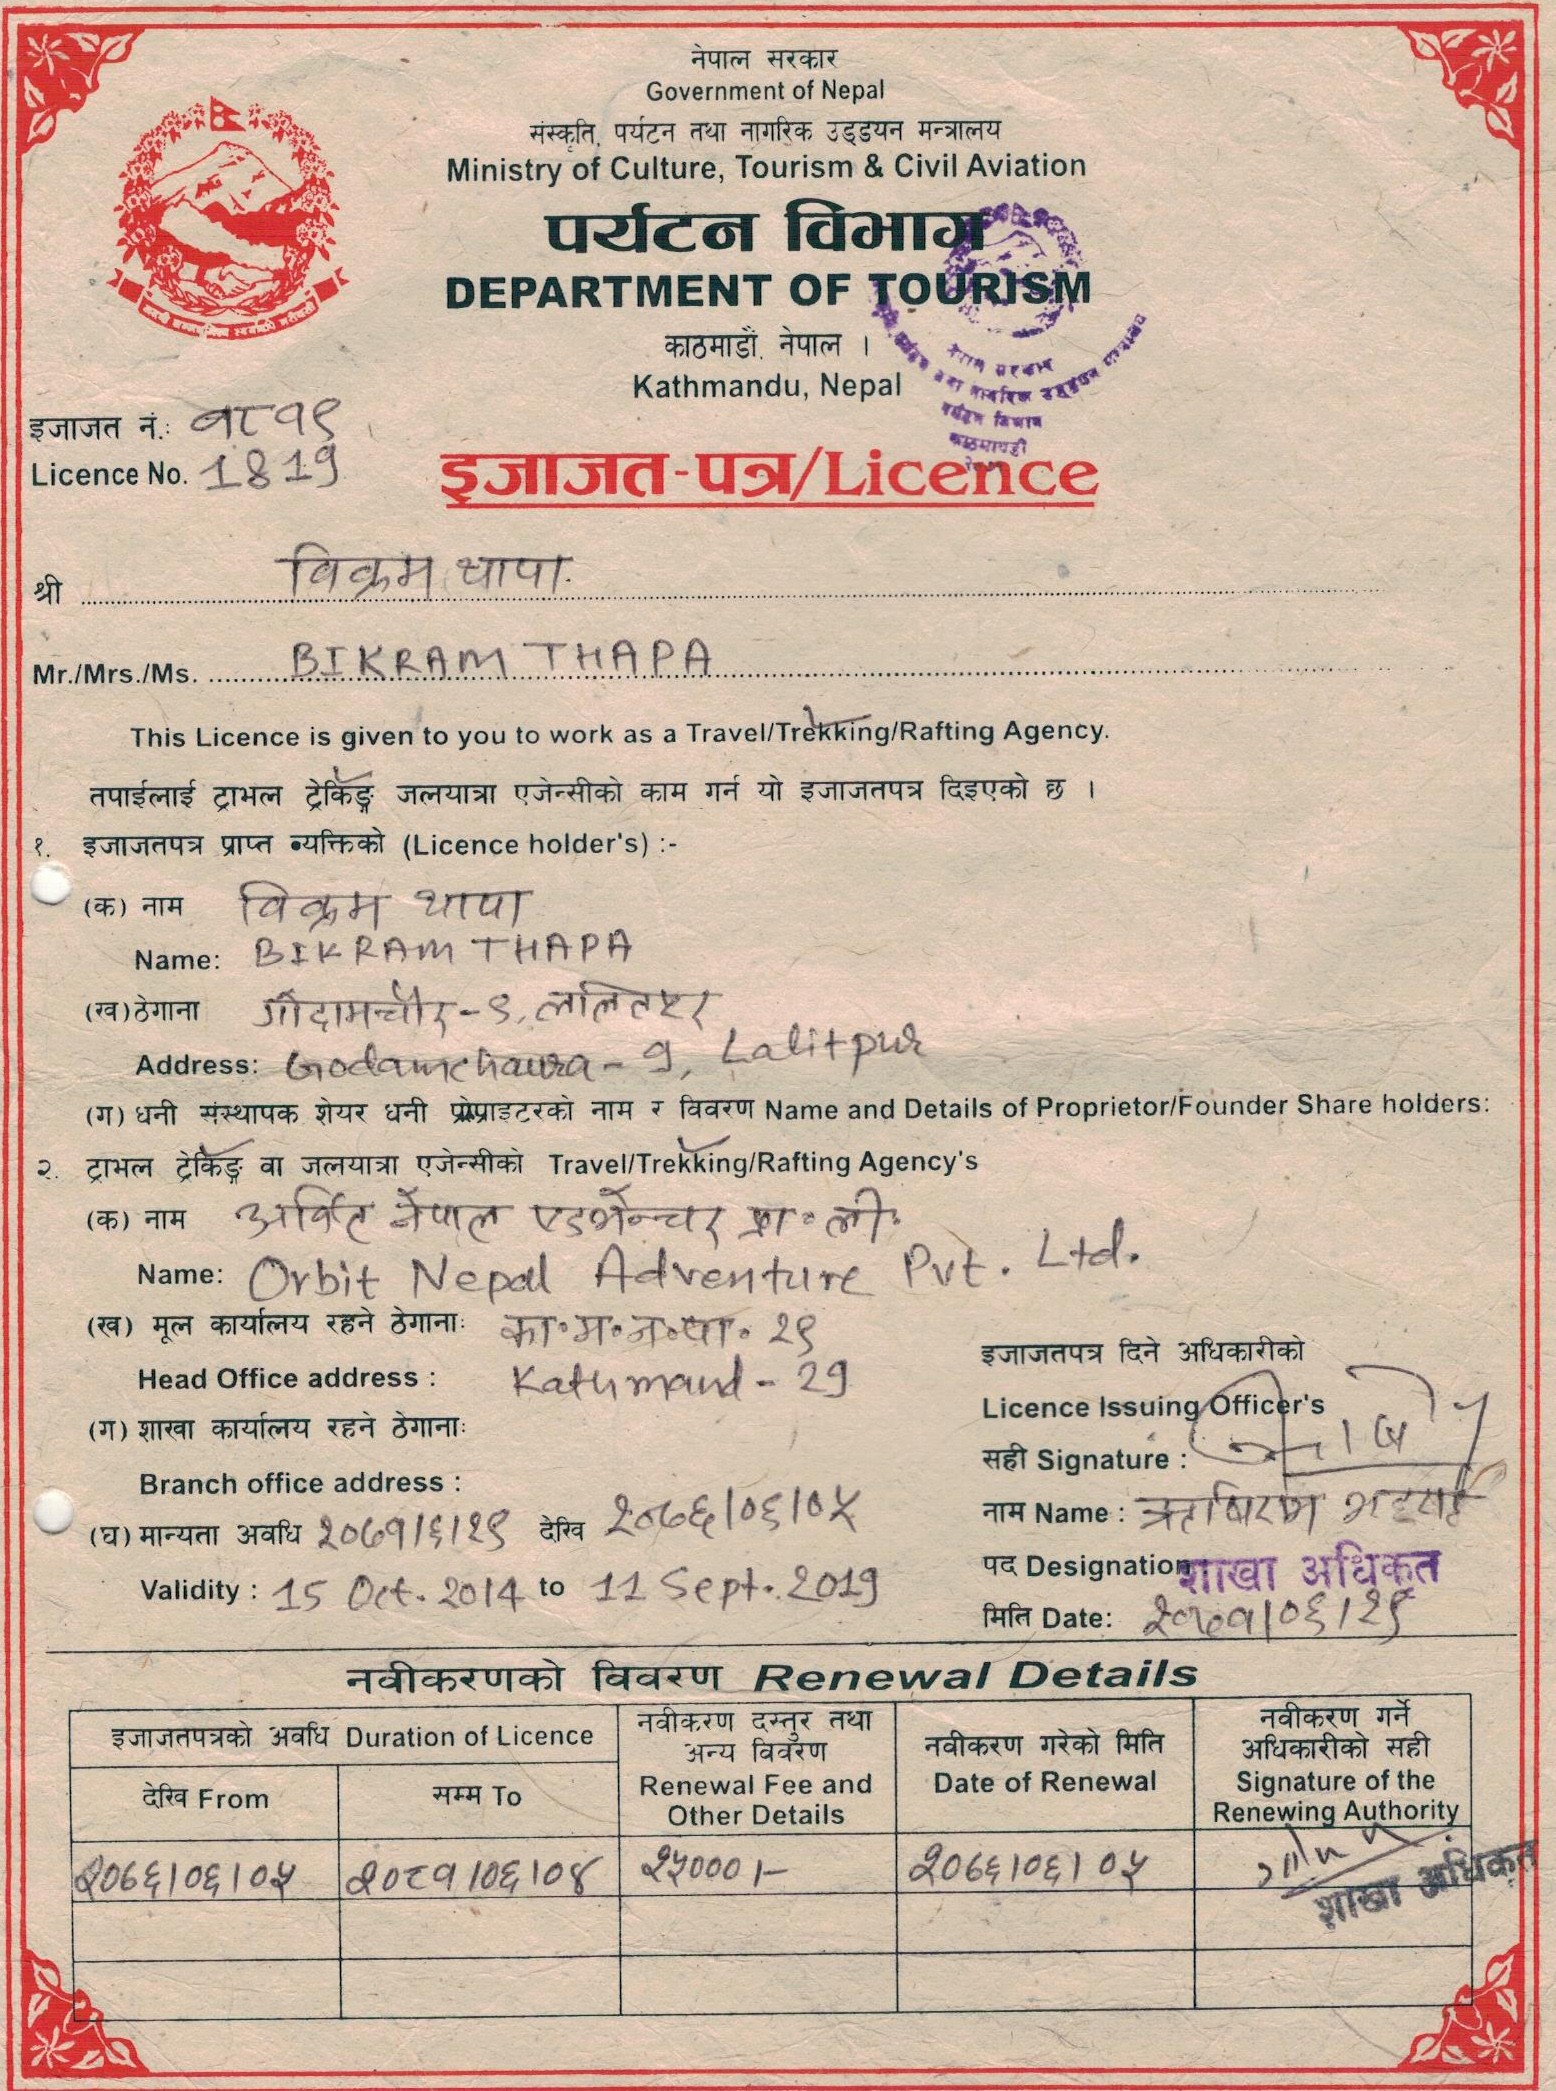 नेपाल सरकार
Government of Nepal
संस्कृति, पर्यटन तथा नागरिक उड्डयन मन्त्रालय
Ministry of Culture, Tourism & Civil Aviation
पर्यटन विभाग
DEPARTMENT OF TOURISM
काठमाडौं, नेपाल ।
Kathmandu, Nepal
नेपाल सरकार
पर्यटन विभाग
इजाजत नं.: १८१९
Licence No. 1819
इजाजत-पत्र/Licence
श्री विक्रम थापा
Mr./Mrs./Ms. BIKRAM THAPA
This Licence is given to you to work as a Travel/Trekking/Rafting Agency.
तपाईलाई ट्राभल ट्रेकिङ्ग जलयात्रा एजेन्सीको काम गर्न यो इजाजतपत्र दिइएको छ ।
१. इजाजतपत्र प्राप्त व्यक्तिको (Licence holder's) :-
(क) नाम विक्रम थापा
Name: BIKRAM THAPA
(ख) ठेगाना गोदामचौर-९, ललितपुर
Address: Godamchaura-9, Lalitpur
(ग) धनी संस्थापक शेयर धनी प्रोप्राइटरको नाम र विवरण Name and Details of Proprietor/Founder Share holders:
२. ट्राभल ट्रेकिङ्ग वा जलयात्रा एजेन्सीको Travel/Trekking/Rafting Agency's
(क) नाम अर्विट नेपाल एडभेन्चर प्रा॰ली॰
Name: Orbit Nepal Adventure Pvt. Ltd.
(ख) मूल कार्यालय रहने ठेगानाः का॰म॰न॰पा॰ २९
Head Office address : Kathmand-29
(ग) शाखा कार्यालय रहने ठेगानाः
Branch office address :
(घ) मान्यता अवधि २०७१/६/२९ देखि २०७६/०६/०५
Validity : 15 Oct. 2014 to 11 Sept. 2019
इजाजतपत्र दिने अधिकारीको
Licence Issuing Officer's
सही Signature :
नाम Name : ऋषिराम भट्टराई
पद Designation शाखा अधिकृत
मिति Date: २०७१/०६/२९
नवीकरणको विवरण Renewal Details
इजाजतपत्रको अवधि Duration of Licence
देखि From
सम्म To
नवीकरण दस्तुर तथा अन्य विवरण
Renewal Fee and Other Details
नवीकरण गरेको मिति
Date of Renewal
नवीकरण गर्ने अधिकारीको सही
Signature of the Renewing Authority
२०७६/०६/०५ २०८१/०६/०४ २५०००/- २०७६/०६/०५
शाखा अधिकृत